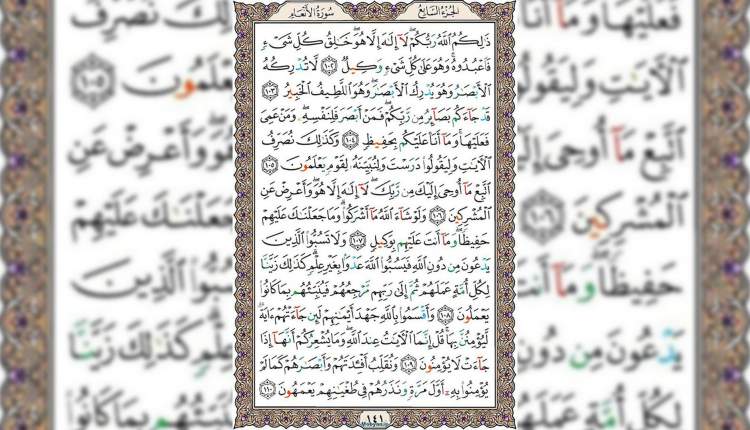 سُورَةُ الأَنْعَامِ
الجُزْءُ السَّابِعُ
ذَٰلِكُمُ ٱللَّهُ رَبُّكُمْ ۖ لَآ إِلَٰهَ إِلَّا هُوَ ۖ خَٰلِقُ كُلِّ شَىْءٍ
فَٱعْبُدُوهُ ۚ وَهُوَ عَلَىٰ كُلِّ شَىْءٍ وَكِيلٌ ١٠٢ لَّا تُدْرِكُهُ
ٱلْأَبْصَٰرُ وَهُوَ يُدْرِكُ ٱلْأَبْصَٰرَ ۖ وَهُوَ ٱللَّطِيفُ ٱلْخَبِيرُ ١٠٣
قَدْ جَآءَكُم بَصَآئِرُ مِن رَّبِّكُمْ ۖ فَمَنْ أَبْصَرَ فَلِنَفْسِهِۦ ۖ وَمَنْ عَمِىَ
فَعَلَيْهَا ۚ وَمَآ أَنَا۠ عَلَيْكُم بِحَفِيظٍ ١٠٤ وَكَذَٰلِكَ نُصَرِّفُ
ٱلْءَايَٰتِ وَلِيَقُولُوا۟ دَرَسْتَ وَلِنُبَيِّنَهُۥ لِقَوْمٍ يَعْلَمُونَ ١٠٥
ٱتَّبِعْ مَآ أُوحِىَ إِلَيْكَ مِن رَّبِّكَ ۖ لَآ إِلَٰهَ إِلَّا هُوَ ۖ وَأَعْرِضْ عَنِ
ٱلْمُشْرِكِينَ ١٠٦ وَلَوْ شَآءَ ٱللَّهُ مَآ أَشْرَكُوا۟ ۗ وَمَا جَعَلْنَٰكَ عَلَيْهِمْ
حَفِيظًا ۖ وَمَآ أَنتَ عَلَيْهِم بِوَكِيلٍ ١٠٧ وَلَا تَسُبُّوا۟ ٱلَّذِينَ
يَدْعُونَ مِن دُونِ ٱللَّهِ فَيَسُبُّوا۟ ٱللَّهَ عَدْوًۢا بِغَيْرِ عِلْمٍ ۗ كَذَٰلِكَ زَيَّنَّا
لِكُلِّ أُمَّةٍ عَمَلَهُمْ ثُمَّ إِلَىٰ رَبِّهِم مَّرْجِعُهُمْ فَيُنَبِّئُهُم بِمَا كَانُوا۟
يَعْمَلُونَ ١٠٨ وَأَقْسَمُوا۟ بِٱللَّهِ جَهْدَ أَيْمَٰنِهِمْ لَئِن جَآءَتْهُمْ ءَايَةٌ
لَّيُؤْمِنُنَّ بِهَا ۚ قُلْ إِنَّمَا ٱلْءَايَٰتُ عِندَ ٱللَّهِ ۖ وَمَا يُشْعِرُكُمْ أَنَّهَآ إِذَا
جَآءَتْ لَا يُؤْمِنُونَ ١٠٩ وَنُقَلِّبُ أَفْـِٔدَتَهُمْ وَأَبْصَٰرَهُمْ كَمَا لَمْ
يُؤْمِنُوا۟ بِهِۦٓ أَوَّلَ مَرَّةٍ وَنَذَرُهُمْ فِى طُغْيَٰنِهِمْ يَعْمَهُونَ ١١٠
١٤١